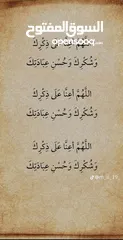 السوق المفتوح
opensooq.com
وَشُكْرِكَ وَحُسْنِ عِبَادَتِكَ
اللَّهُمَّ أَعِنَّا عَلَىٰ ذِكْرِكَ
وَشُكْرِكَ وَحُسْنِ عِبَادَتِكَ
اللَّهُمَّ أَعِنَّا عَلَىٰ ذِكْرِكَ
وَشُكْرِكَ وَحُسْنِ عِبَادَتِكَ